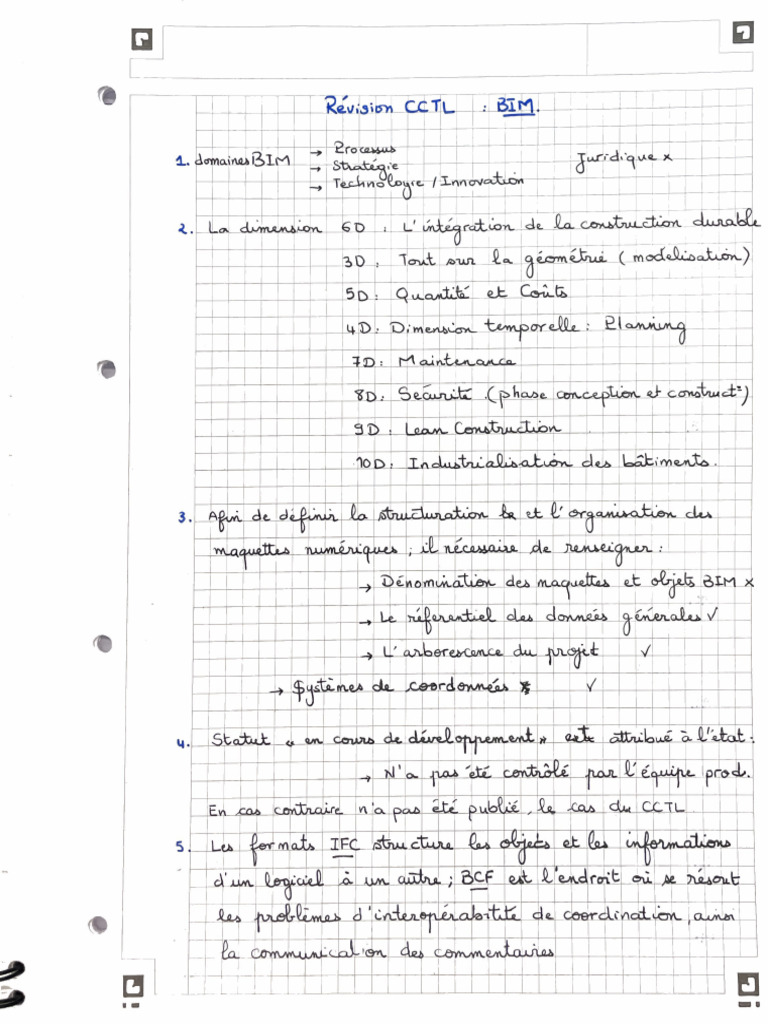 Révision CCTL : BIM.
1. domaines BIM → Processus
→ Stratégie
→ Technologie / Innovation
Juridique x
2. La dimension 6D : L'intégration de la construction durable
3D : Tout sur la géométrié (modélisation)
5D : Quantité et Coûts
4D : Dimension temporelle : Planning
7D : Maintenance
8D : Sécurité (phase conception et construct°)
9D : Lean Construction
10D : Industrialisation des bâtiments.
3. Afin de définir la structuration et l'organisation des
maquettes numériques, il nécessaire de renseigner :
→ Dénomination des maquettes et objets BIM x
→ Le réferentiel des données générales ✓
→ L'arborescence du projet ✓
→ Systèmes de coordonnées ✓
4. Statut « en cours de développement » est attribué à l'état :
→ N'a pas été contrôlé par l'équipe prod.
En cas contraire n'a pas été publié, le cas du CCTL
5. Les formats IFC structure les objets et les informations
d'un logiciel à un autre ; BCF est l'endroit où se résout
les problèmes d'interopérabitité de coordination, ainsi
la communication des commentaires